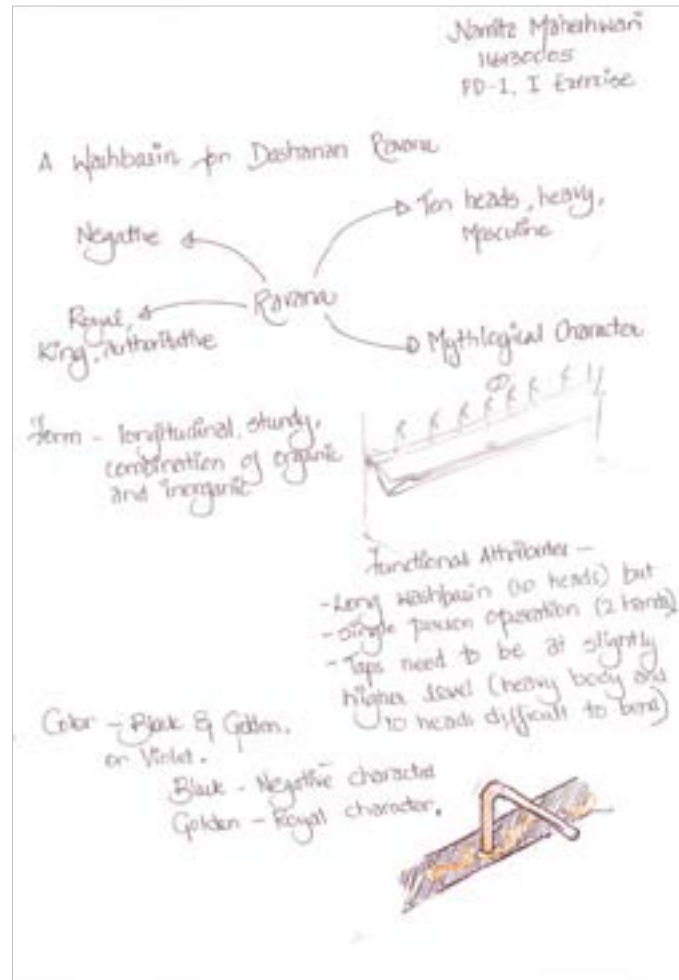 Namita Maheshwari
PD-I, I Exercise
A Washbasin for Dashanan Ravana
Negative
Ten heads, heavy,
Masculine
Ravana
Royal,
King, Authoritative
Mythlogical Character
Form - longitudinal, sturdy,
combination of organic
and inorganic
Functional Attributes -
- Long washbasin (10 heads) but
- Single person operation (2 hands)
- Taps need to be at slightly
higher level (heavy body and
10 heads difficult to bend)
Color - Black & Golden.
or Violet.
Black - Negative character
Golden - Royal character.